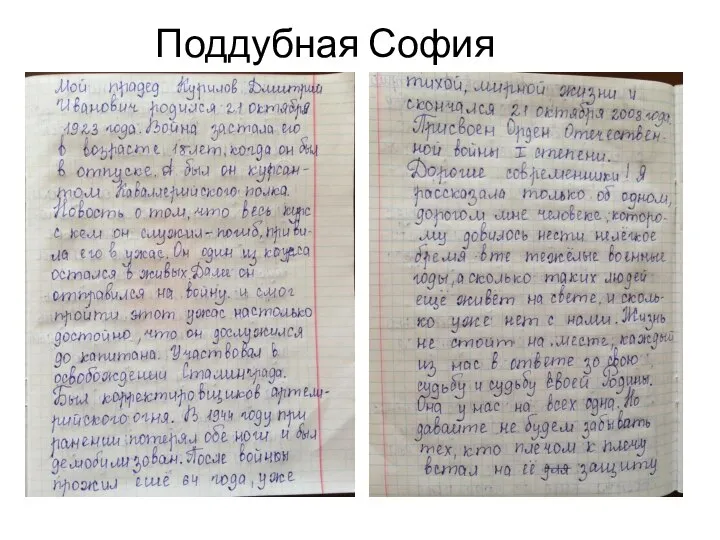 Поддубная София
Мой прадед Курилов Дмитрий
Иванович родился 21 октября
1923 года. Война застала его
в возрасте 18 лет, когда он был
в отпуске. А был он курсан-
том Кавалерийского полка.
Новость о том, что весь курс
с кем он служил - погиб, приве-
ла его в ужас. Он один из курса
остался в живых. Далее он
отправился на войну и смог
пройти этот ужас настолько
достойно, что он дослужился
до капитана. Участвовал в
освобождении Сталинграда.
Был корректировщиков артеле-
рийского огня. В 1944 году при
ранении потерял обе ноги и был
демобилизован. После войны
прожил ещё 64 года, уже
тихой, мирной жизни и
скончался 21 октября 2008 года.
Присвоен Орден Отечествен-
ной войны I степени.
Дорогие современники! Я
рассказала только об одном,
дорогом мне человеке, которо-
му довилось нести нелёгкое
бремя в те тежёлые военные
годы, а сколько таких людей
ещё живёт на свете, и сколь-
ко уже нет с нами. Жизнь
не стоит на месте, каждый
из нас в ответе за свою
судьбу и судьбу своей Родины.
Она у нас на всех одна. Но
давайте не будем забывать
тех, кто плечом к плечу
встал на её для защиту